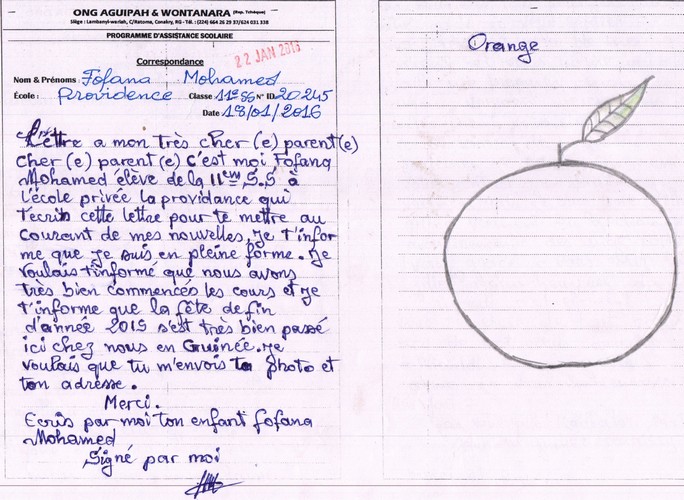 ONG AGUIPAH & WONTANARA (Rep. Tchèque)
Siège : Lambanyi-wariah, C/Ratoma, Conakry, RG - Tél. : (224) 664 26 29 37/624 031 338
PROGRAMME D'ASSISTANCE SCOLAIRE
22 JAN 2016
Correspondance
Nom & Prénoms : Fofana Mohamed
École : Providence Classe 11e SS N° ID 20.245
Date 18/01/2016
Lettre a mon très cher (e) parent(e)
cher (e) parent(e) c'est moi Fofana
Mohamed élève de la 11em S.S à
l'école privée la providance qui
t'écris cette lettre pour te mettre au
courant de mes nouvelles, je t'infor
me que je suis en pleine forme. Je
voulais t'informé que nous avons
très bien commencés les cours et je
t'informe que la fête de fin
d'année 2015 s'est très bien passé
ici chez nous en Guinée. Je
voulais que tu m'envois ta photo et
ton adresse.
Merci.
Ecris par moi ton enfant fofana
Mohamed
Signé par moi
Orange